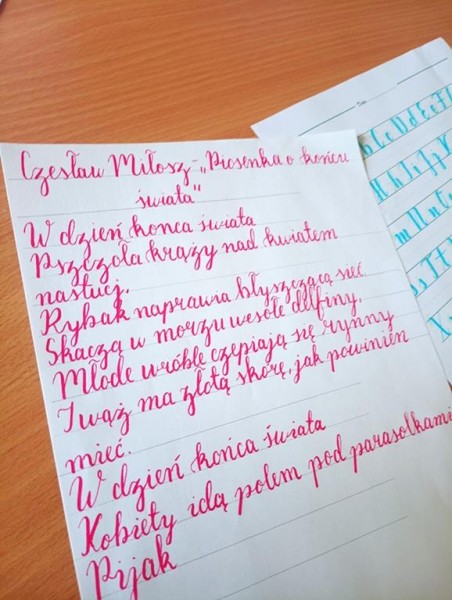 Czesław Miłosz-„Piosenka o końcu
świata"
W dzień końca świata
Pszczoła krąży nad kwiatem
nastucj.
Rybak naprawia błyszczącą sieć.
Skaczą w morzu wesołe delfiny,
Młode wróble czepiają się rynny
I wąż ma złotą skórę, jak powinien
mieć.
W dzień końca świata
Kobiety idą polem pod parasolkami
Pijak